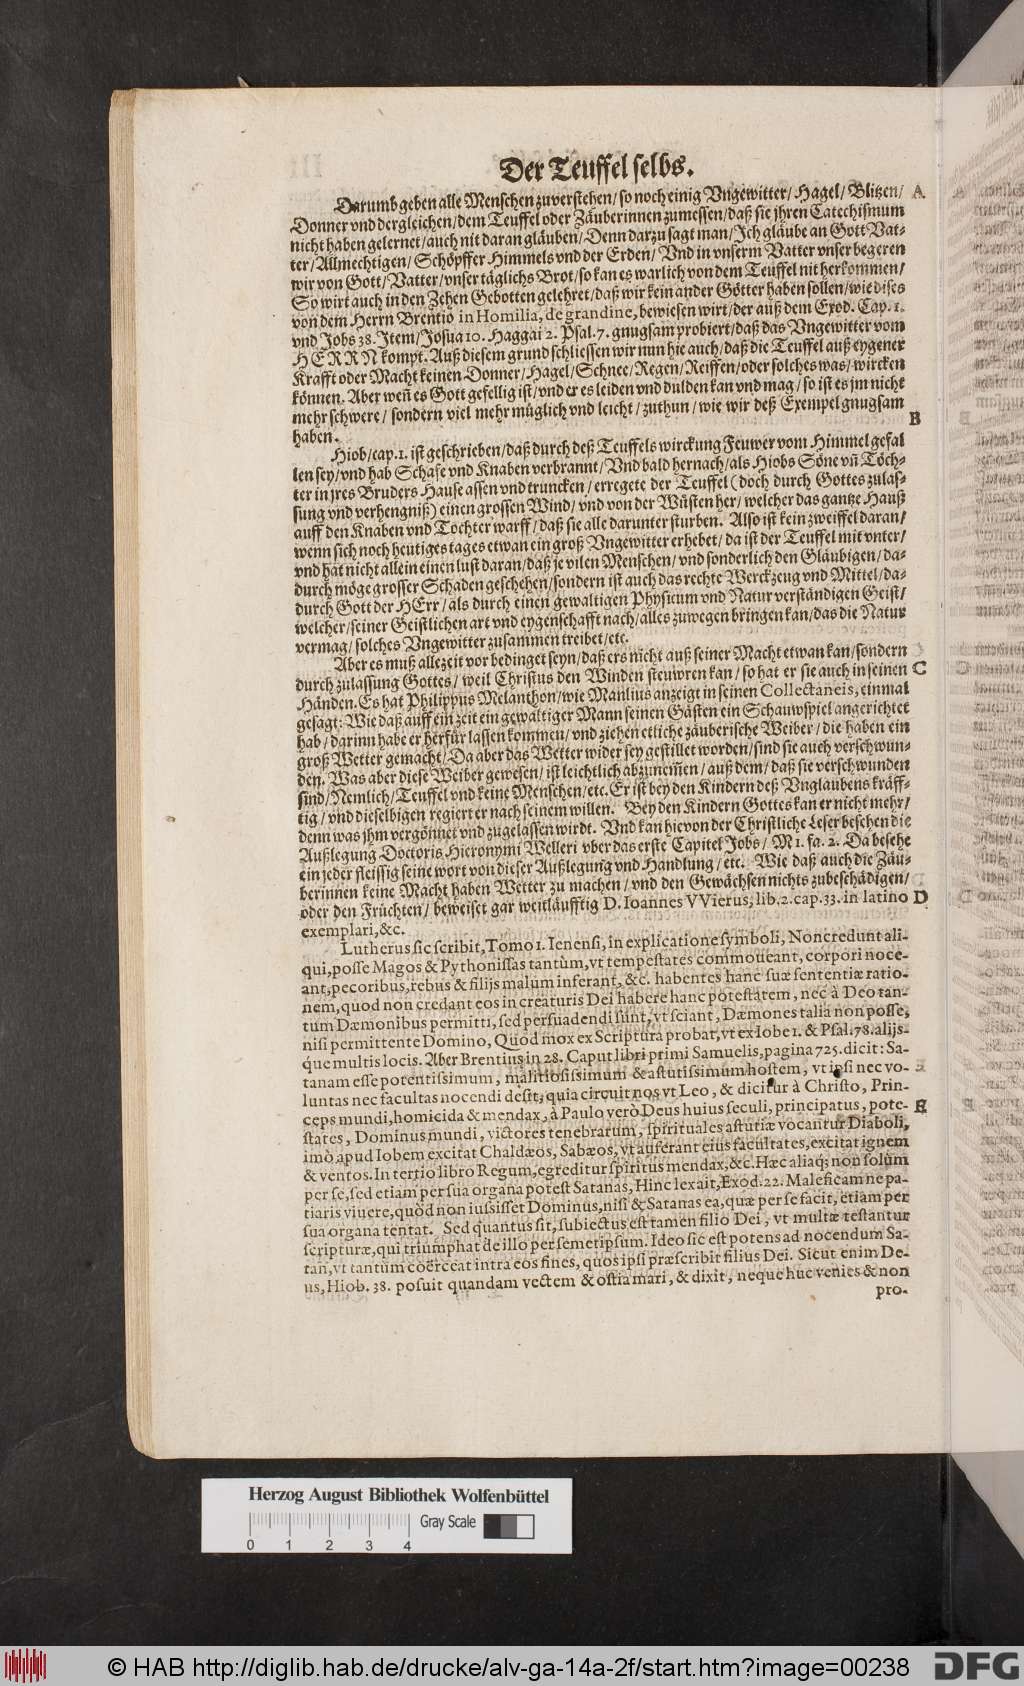 Der Teuffel selbs.
Darumb geben alle Menschen zuverstehen/ so noch einig Vngewitter/ Hagel/ Blitzen/ A
Donner vnd dergleichen/ dem Teuffel oder Zäuberinnen zumessen/ daß sie jhren Catechismum
nicht haben gelernet/ auch nit daran gläuben/ Denn darzu sagt man/ Ich gläube an Gott Vat-
ter/ Allmechtigen/ Schöpffer Himmels vnd der Erden/ Vnd in vnserm Vatter vnser begeren
wir von Gott/ Vatter/ vnser täglichs Brot/ so kan es warlich von dem Teuffel nit herkommen/
So wirt auch in den Zehen Gebotten gelehret/ daß wir kein ander Götter haben sollen/ wie dises
von dem Herrn Brentio in Homilia, de grandine, bewiesen wirt/ der auß dem Exod. Cap. 1.
vnd Jobs 38. Item/ Josua 10. Haggai 2. Psal. 7. gnugsam probiert/ daß das Vngewitter vom
HERRN kompt. Auß diesem grund schliessen wir nun hie auch/ daß die Teuffel auß eygener
Krafft oder Macht keinen Donner/ Hagel/ Schnee/ Regen/ Reiffen/ oder solches was/ wircken
können. Aber weñ es Gott gefellig ist/ vnd er es leiden vnd dulden kan vnd mag/ so ist es jm nicht
mehr schwere/ sondern viel mehr müglich vnd leicht/ zuthun/ wie wir deß Exempel gnugsam
haben. B
Hiob/ cap. 1. ist geschrieben/ daß durch deß Teuffels wirckung Feuwer vom Himmel gefal
len sey/ vnd hab Schafe vnd Knaben verbrannt/ Vnd bald hernach/ als Hiobs Söne vñ Töch-
ter in jres Bruders Hause assen vnd truncken/ erregete der Teuffel (doch durch Gottes zulas-
sung vnd verhengniß) einen grossen Wind/ vnd von der Wüsten her/ welcher das gantze Hauß
auff den Knaben vnd Tochter warff/ daß sie alle darunter sturben. Also ist kein zweiffel daran/
wenn sich noch heutiges tages etwan ein groß Vngewitter erhebet/ da ist der Teuffel mit vnter/
vnd hat nicht allein einen lust daran/ daß je vilen Menschen/ vnd sonderlich den Gläubigen/ da-
durch möge grosser Schaden geschehen/ sondern ist auch das rechte Werckzeug vnd Mittel/ da-
durch Gott der HErr/ als durch einen gewaltigen Physicum vnd Natur verständigen Geist/
welcher/ seiner Geistlichen art vnd eygenschafft nach/ alles zuwegen bringen kan/ das die Natur
vermag/ solches Vngewitter zusammen treibet/ etc.
Aber es muß allezeit vor bedinget seyn/ daß ers nicht auß seiner Macht etwan kan/ sondern
durch zulassung Gottes/ weil Christus den Winden steuwren kan/ so hat er sie auch in seinen C
Händen. Es hat Philippus Melanthon/ wie Manlius anzeigt in seinen Collectaneis, einmal
gesagt: Wie daß auff ein zeit ein gewaltiger Mann seinen Gästen ein Schauwspiel angerichtet
hab/ darinn habe er herfür lassen kommen/ vnd ziehen etliche zäuberische Weiber/ die haben ein
groß Wetter gemacht/ Da aber das Wetter wider sey gestillet worden/ sind sie auch verschwun-
den. Was aber diese Weiber gewesen/ ist leichtlich abzunem̃en/ auß dem/ daß sie verschwunden
sind/ Nemlich/ Teuffel vnd keine Menschen/ etc. Er ist bey den Kindern deß Vnglaubens kräff-
tig/ vnd dieselbigen regiert er nach seinem willen. Bey den Kindern Gottes kan er nicht mehr/
denn was jhm vergönnet vnd zugelassen wirdt. Vnd kan hievon der Christliche Leser besehen die
Außlegung Doctoris Hieronymi Welleri vber das erste Capitel Jobs/ M 1. fa. 2. Da besehe
ein jeder fleissig seine wort von dieser Außlegung vnd Handlung/ etc. Wie daß auch die Zäu-
berinnen keine Macht haben Wetter zu machen/ vnd den Gewächsen nichts zubeschädigen/
oder den Früchten/ beweiset gar weitläufftig D. Ioannes VVierus, lib. 2. cap. 33. in latino D
exemplari, &c.
Lutherus sic scribit, Tomo 1. Ienensi, in explicatione symboli, Non credunt ali-
qui, posse Magos & Pythonissas tantùm, vt tempestates commoueant, corpori noce-
ant, pecoribus, rebus & filijs malum inferant, &c. habentes hanc suæ sententiæ ratio-
nem, quod non credant eos in creaturis Dei habere hanc potestatem, nec à Deo tan-
tum Dæmonibus permitti, sed persuadendi sunt, vt sciant, Dæmones talia non posse,
nisi permittente Domino, Quod mox ex Scriptura probat, vt ex Iobe 1. & Psal. 78. alijs-
que multis locis. Aber Brentius in 28. Caput libri primi Samuelis, pagina 725. dicit: Sa-
tanam esse potentissimum, malitiosissimum & astutissimum hostem, vt ipsi nec vo-
luntas nec facultas nocendi desit, quia circuit nos vt Leo, & dicitur à Christo, Prin-
ceps mundi, homicida & mendax, à Paulo verò Deus huius seculi, principatus, pote- E
states, Dominus mundi, victores tenebrarum, spirituales astutiæ vocantur Diaboli,
imò apud Iobem excitat Chaldæos, Sabæos, vt auferant eius facultates, excitat ignem
& ventos. In tertio libro Regum, egreditur spiritus mendax, &c. Hæc aliaq́; non solùm
per se, sed etiam per sua organa potest Satanas, Hinc lex ait, Exod. 22. Maleficam ne pa-
tiaris viuere, quòd non iussisset Dominus, nisi & Satanas ea, quæ per se facit, etiam per
sua organa tentat. Sed quantus sit, subiectus est tamen filio Dei, vt multæ testantur
scripturæ, qui triumphat de illo per semetipsum. Ideo sic est potens ad nocendum Sa-
tan, vt tantum coërceat intra eos fines, quos ipsi præscribit filius Dei. Sicut enim De-
us, Hiob. 38. posuit quandam vectem & ostia mari, & dixit, neque huc venies & non
pro-
Herzog August Bibliothek Wolfenbüttel
0 1 2 3 4 Gray Scale
© HAB http://diglib.hab.de/drucke/alv-ga-14a-2f/start.htm?image=00238 DFG